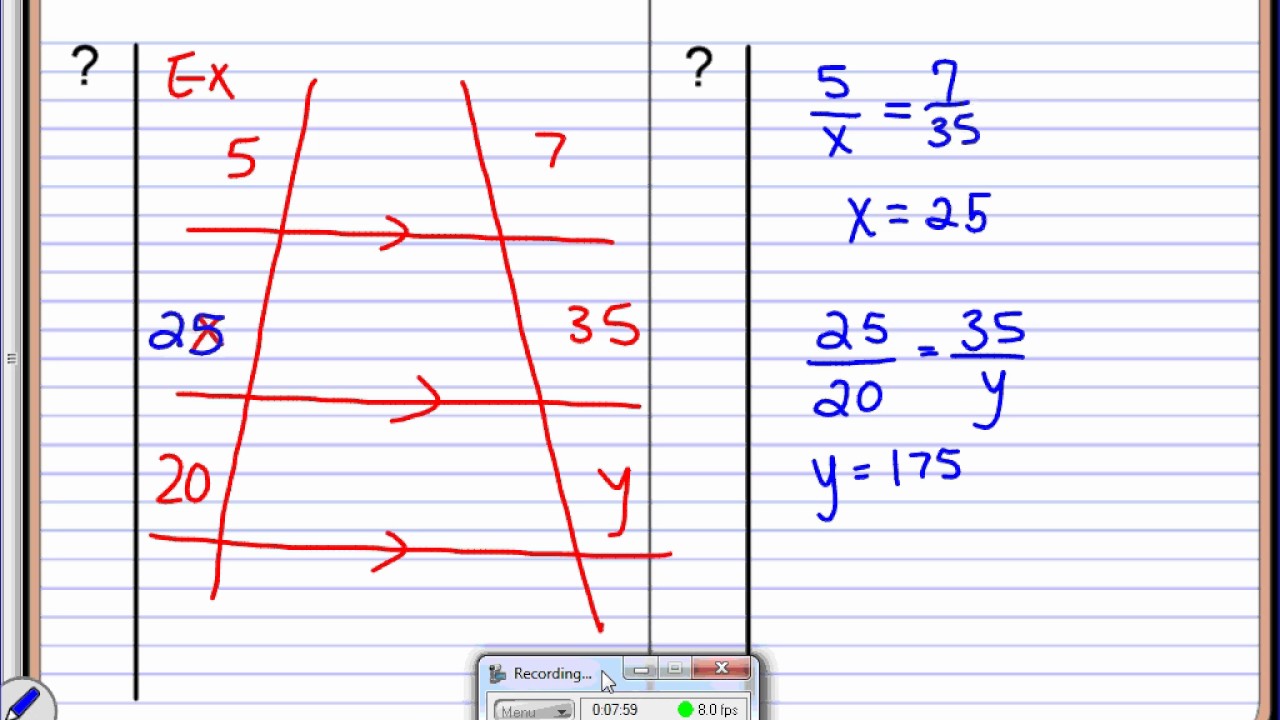 ?
Ex
5
7
25
35
20
y
?
5/x = 7/35
x = 25
25/20 = 35/y
y = 175
Recording...
Menu
0:07:59
8.0 fps